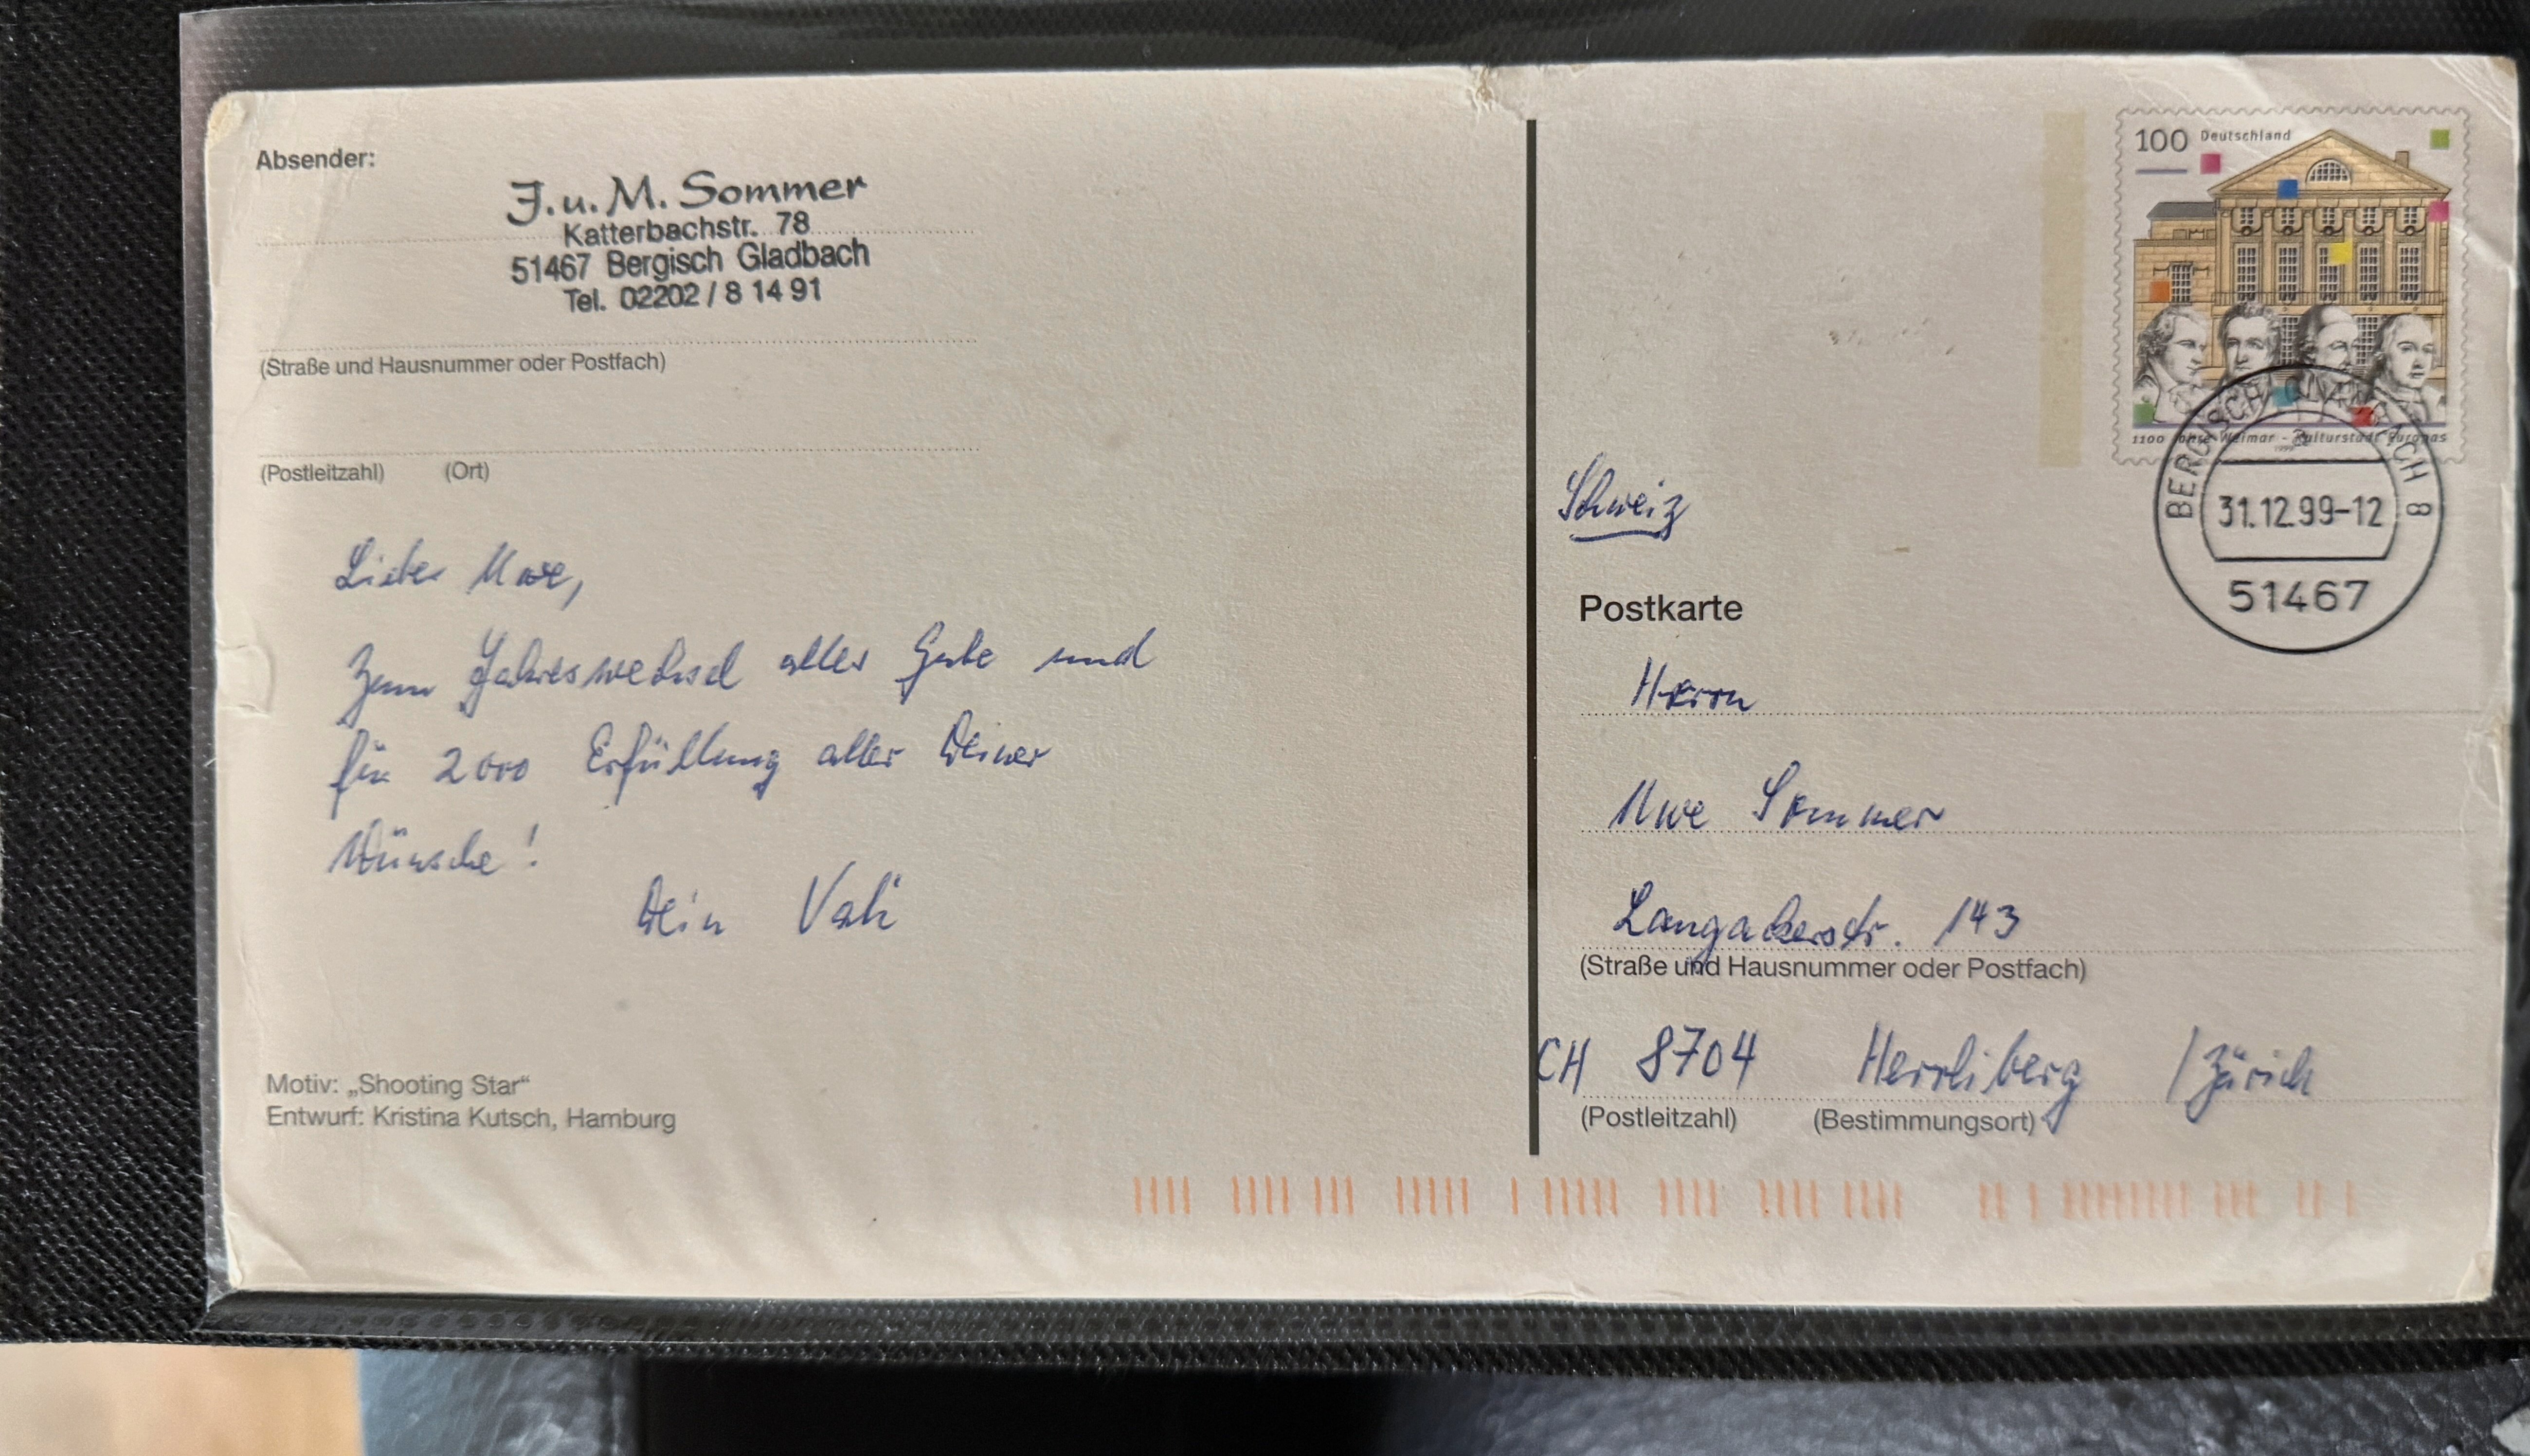 Absender:
J. u. M. Sommer
Katterbachstr. 78
51467 Bergisch Gladbach
Tel. 02202 / 8 14 91
(Straße und Hausnummer oder Postfach)
(Postleitzahl) (Ort)
Lieber Uwe,
zum Jahreswechsel alles Gute und
für 2000 Erfüllung aller Deiner
Wünsche!
Dein Vati
Motiv: „Shooting Star“
Entwurf: Kristina Kutsch, Hamburg
100 Deutschland
1100 Jahre Weimar - Kulturstadt Europas
BERGISCH GLADBACH 8
31.12.99-12
51467
Schweiz
Postkarte
Herrn
Uwe Sommer
Langackerstr. 143
(Straße und Hausnummer oder Postfach)
CH 8704 Herrliberg / Zürich
(Postleitzahl) (Bestimmungsort)